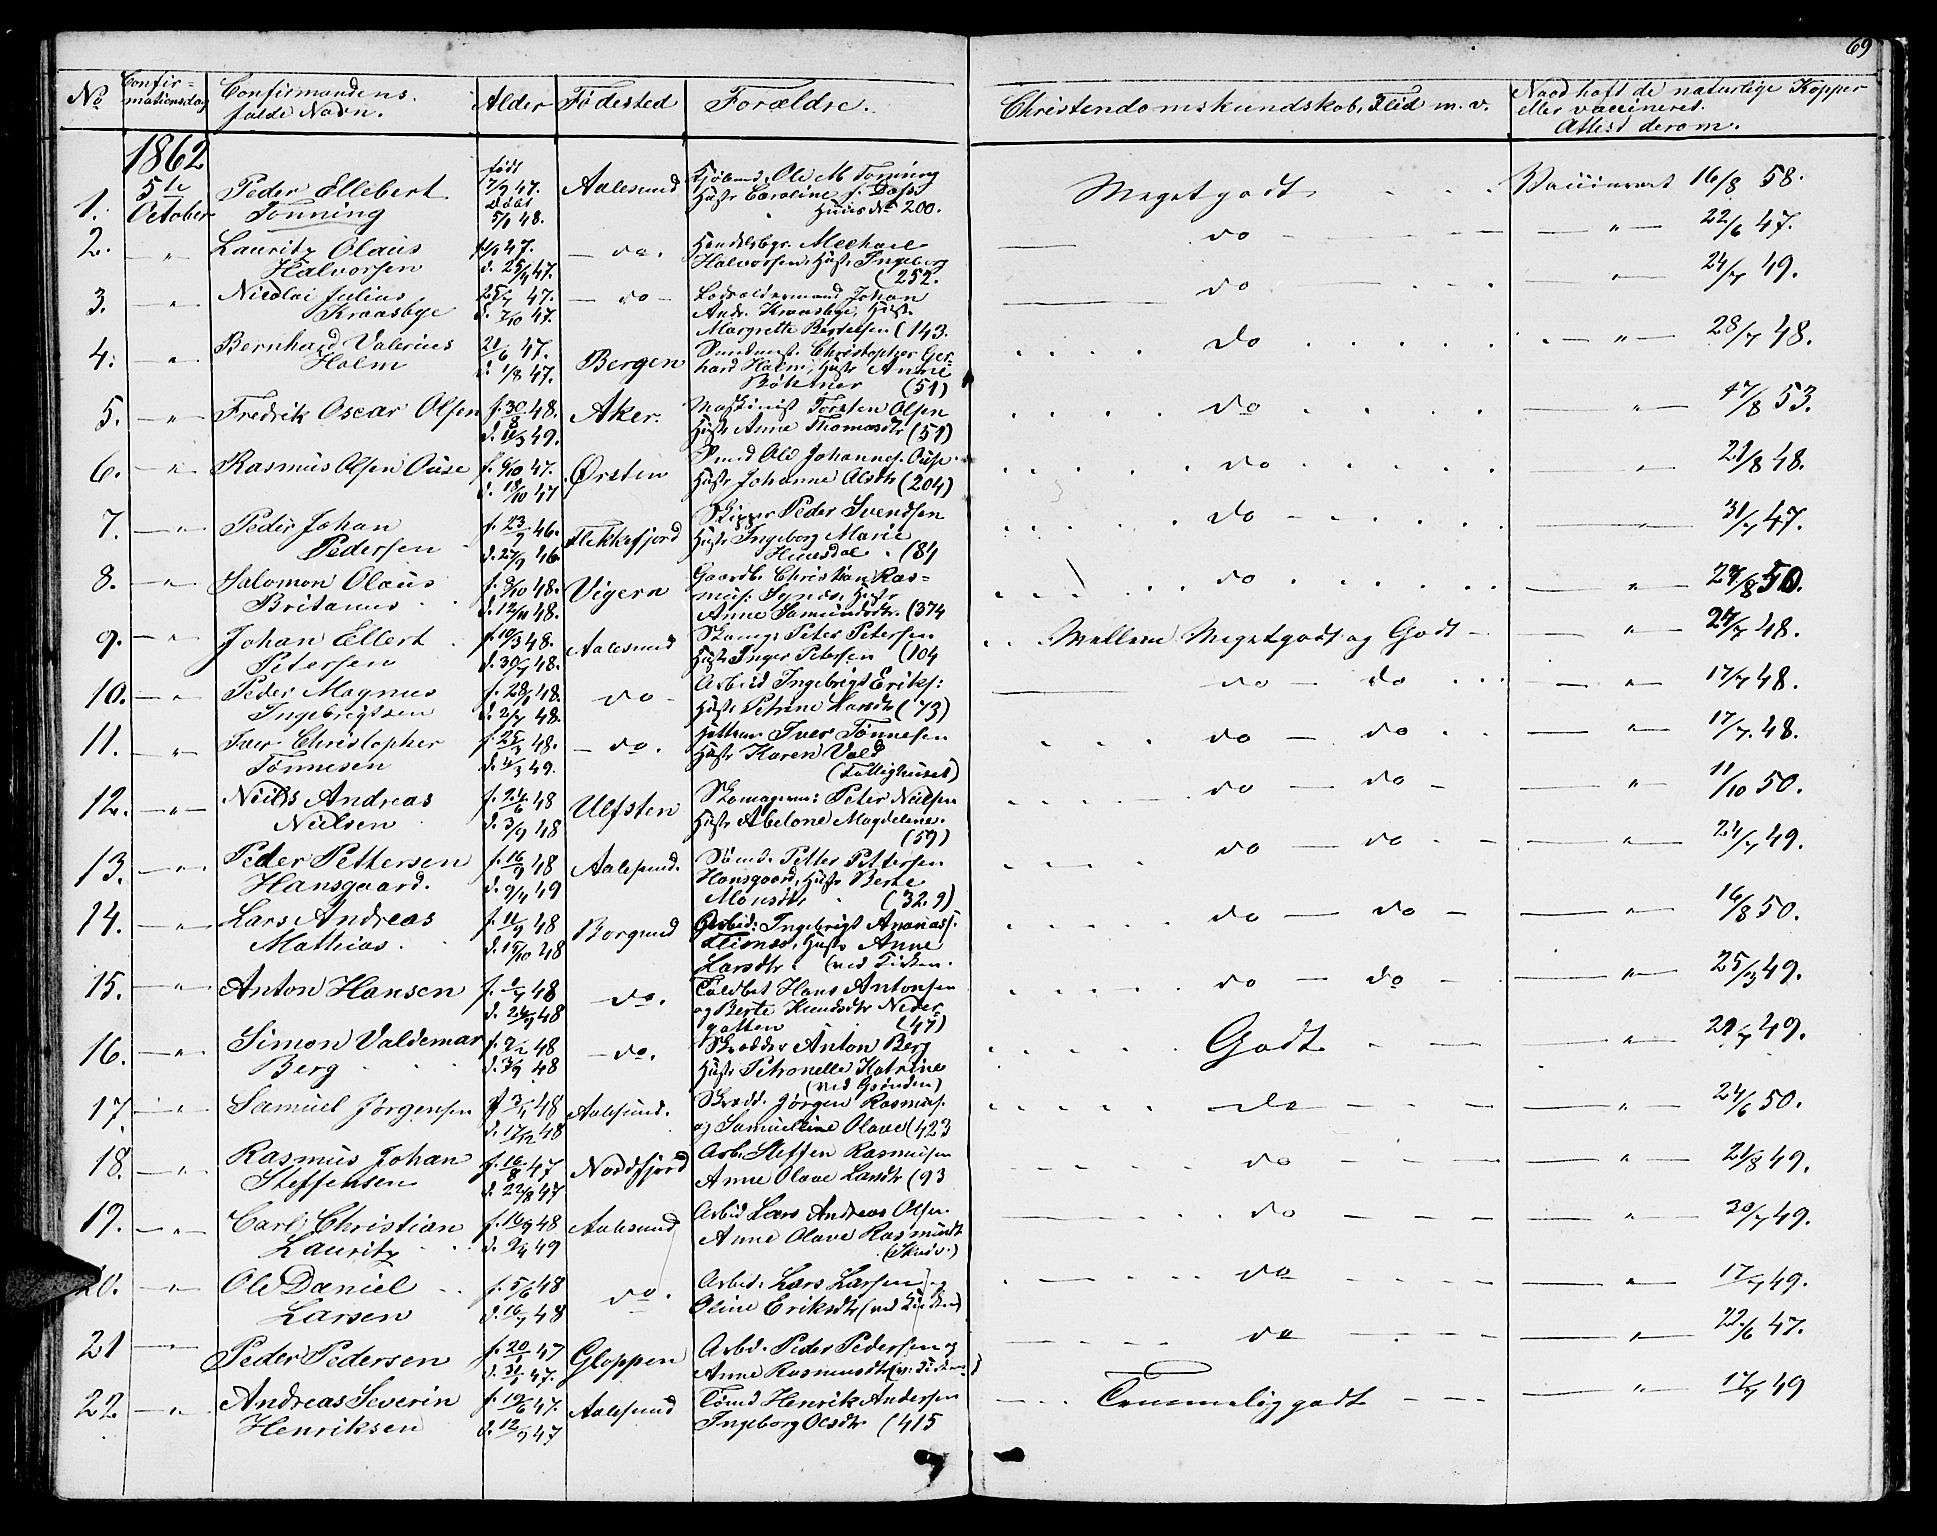 69
No Confir-mationsdag Confirmandens fulde Navn. Alder Fødested Forældre. Christendomskundskab, Flid m. v. Naar haft de naturlige Kopper eller vaccineret. Attest derom.
1862
1. 5te October Peder Ellebert født 17/9 47. Aalesund Ole M Tonning Meget godt Vaccineret 16/8 58.
Tonning Døbt 5/1 48. Hustr Caroline f. Huus No 200.
2. " Lauritz Olaus 47. do. Handelsbgr. Halvorsen, Hust Ingeborg do " 22/6 47.
Halvorsen d. 25/ 47. (252.
3. " Nicolai Julius 25/7 47. do Johan do " 24/7 49.
Kraasbye d. 7/10 47. Andr. Kraasbye, Hust.
Margrethe (143.
4. " Bernhard Valerius 21/6 47. Bergen Christopher Ger- do " 28/7 48.
Holm d. 1/8 47. hard Holm, Hust Anne
(51)
5. " Fredrik Oscar Olsen f. 30/8 48. Aker. Maskinist Torsten Olsen do " 53.
d. 49. Hustr Anne Thomasdtr (51)
6. " Rasmus Olsen Ouse f. 6/10 47. Ørsten Smed Ole Johannes. Ouse do " 21/8 48.
d. 18/10 47 Hustr Johanne Olsdtr (204)
7. " Peder Johan f. 23/ 46. Flekkefjord Skipper Peder Svendsen do " 31/7 47.
Pedersen d. 27/9 46 Hustr Ingeborg Marie
(84
8. " Salomon Olaus f. 9/10 48. Vigern Gaardb. Christian Ras- do " /8 50.
Britanus d. 12/11 48. mus. Hustr
Anne Samundsdtr. (374
9. " Johan Ellert f. 10/3 48. Aalesund Skomgr Peter Petersen Mellem Megetgodt og Godt " /7 48.
Petersen d. 30/ 48. Hustr Inger Petersen (104
10. " Peder Magnus f. 28/ 48. do Arbeid Ingebrigt Eriks: do do " 17/7 48.
Ingebrigtsen d. 2/7 48. Hustr Petrine Larsdtr (73)
11. " Iver Christopher f. 25/ 48. do. Iver Tønnesen do do " 17/7 48.
Tønnesen d. /3 49. Hustr Karen Vold
(Fattighuset)
12. " Niels Andreas f. 24/6 48 Ulfsten Skomager: Peter Nielsen do do " 11/10 50.
Nielsen d. 3/9 48 Hustr Abelone Magdelene.
(59)
13. " Peder Pettersen f. 16/9 48 Aalesund. Petter Pettersen do do " 24/7 49.
Hansgaard. d. 9/4 49 Hansgaard, Hustr Berte
Monsdtr (329)
14. " Lars Andreas f. 11/9 48 Borgund Arbeid: Ingebrigt Ananiass. do do " 16/8 50.
Mathias d. 15/10 48 Hustr Anne
Larsdtr (ved Kirken.
15. " Anton Hansen f. /7 48 do. Toldbet Hans Antonsen do do " 25/3 49.
d. 24/9 48 og Berte Knudsdtr Neder
gatten (47)
16. " Simon Valdemar f. 48 do. Skrædder Anton Berg Godt " /7 49.
Berg d. 3/9 48 Hustr Petronelle Katrine
(ved Grønden)
17. " Samuel Jørgensen f. 48 Aalesund. Skrædd. Jørgen Rasmus. do " 24/6 50.
d. 17/12 48 og Samueline Olave (423
18. " Rasmus Johan f. 16/8 47 Nordfjord Arb. Steffen Rasmusen do " 21/8 49.
Steffensen d. 22/8 47 Anne Olave Larsdtr (93
19. " Carl Christian f. 16/9 48 Aalesund Arbeid Lars Andreas Olsen do " 20/7 49.
Lauritz d. 49 Anne Olave Rasmusdtr
20. " Ole Daniel f. 5/6 48 do. Arbeid. Lars Larsen og do " 17/7 49.
Larsen d. 16/7 48 Oline Eriksdtr (ved Kirken)
21 " Peder Pedersen f. 20/ 47 Gloppen Arbd. Peder Pedersen og do " 22/6 47.
d. 31/ 47. Anne Rasmusdtr
22. " Andreas Severin f. 10/6 47. Aalesund Tømd Henrik Andersen Temmelig godt " 17/7 49
Henriksen d. 12/9 47 Ingeborg Olsdtr (415